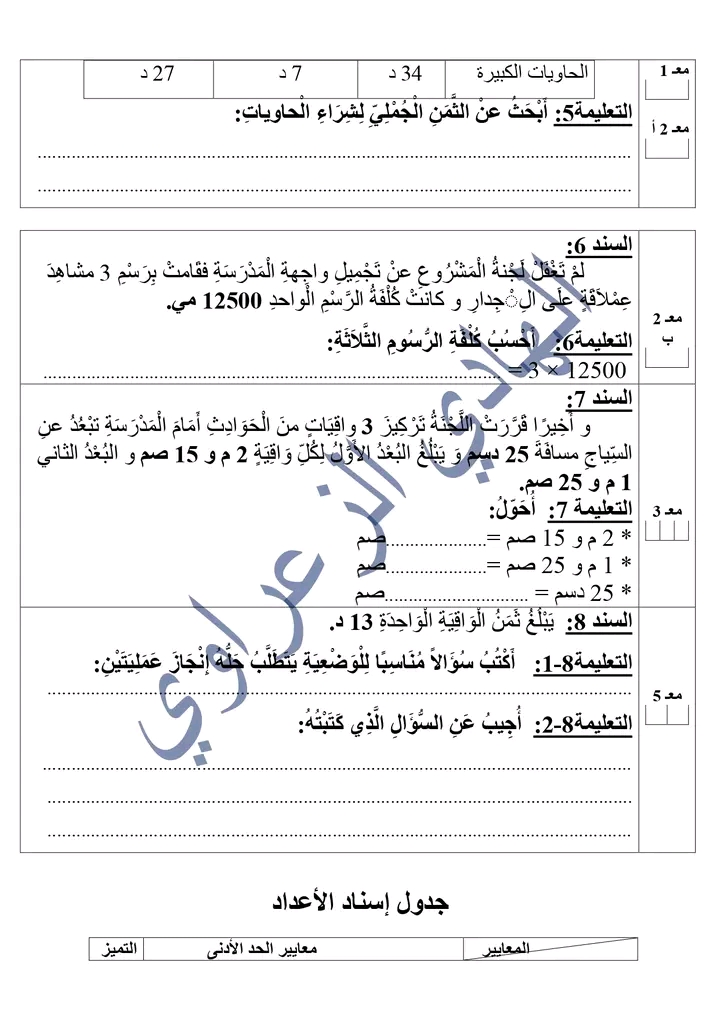 معـ 1
الحاويات الكبيرة 34 د 7 د 27 د
التعليمة5: أَبْحَثُ عنْ الثَّمَنِ الْجُمْلِيِّ لِشِرَاءِ الْحاوياتِ:
معـ 2 أ
................................................
................................................
السند 6:
لَمْ تَغْفَلْ لَجْنةُ الْمَشْرُوعِ عنْ تَجْمِيلِ واجِهةِ الْمَدْرَسَةِ فقَامتْ بِرَسْمِ 3 مشاهِدَ
عِمْلاَقَةٍ علَى الِْجِدارِ و كانتْ كُلْفَةُ الرَّسْمِ الْواحدِ 12500 مي.
معـ 2
ب
التعليمة6: أَحْسُبُ كُلْفَةِ الرُّسُومِ الثَّلاَثَةِ:
12500 × 3 = ................................................
السند 7:
و أَخِيرًا قَرَّرَتْ اللَّجْنَةُ تَرْكِيزَ 3 واقِيَاتٍ منَ الْحَوَادِثِ أَمَامَ الْمَدْرَسَةِ تبْعُدُ عنِ
السِّياجِ مسافَةَ 25 دسم وَ يَبْلُغُ البُعْدُ الأَوَّلُ لِكُلِّ وَاقِيَةٍ 2 م و 15 صم و البُعْدُ الثاني
1 م و 25 صم.
معـ 3
التعليمة 7: أُحَوِّلُ:
* 2 م و 15 صم =.....................صم
* 1 م و 25 صم =.....................صم
* 25 دسم = .............................صم
السند 8: يَبْلُغُ ثَمَنُ الْوَاقِيَةِ الْوَاحِدَةِ 13 د.
التعليمة8-1: أَكْتُبُ سُؤَالاً مُنَاسِبًا لِلْوَضْعِيَةِ يَتَطَلَّبُ حَلُّهُ إِنْجَازَ عَمَلِيَتَيْنِ:
................................................
معـ 5
التعليمة8-2: أُجِيبُ عَنِ السُّؤَالِ الَّذِي كَتَبْتُهُ:
................................................
................................................
................................................
جدول إسناد الأعداد
المعايير معايير الحد الأدنى التميز
الهادي الزعراوي